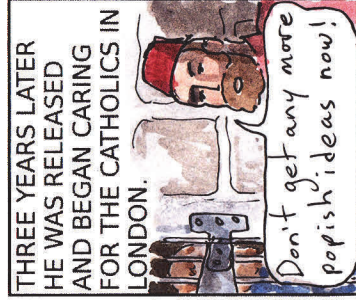 THREE YEARS LATER
HE WAS RELEASED
AND BEGAN CARING
FOR THE CATHOLICS IN
LONDON.
Don't get any more
popish ideas now!